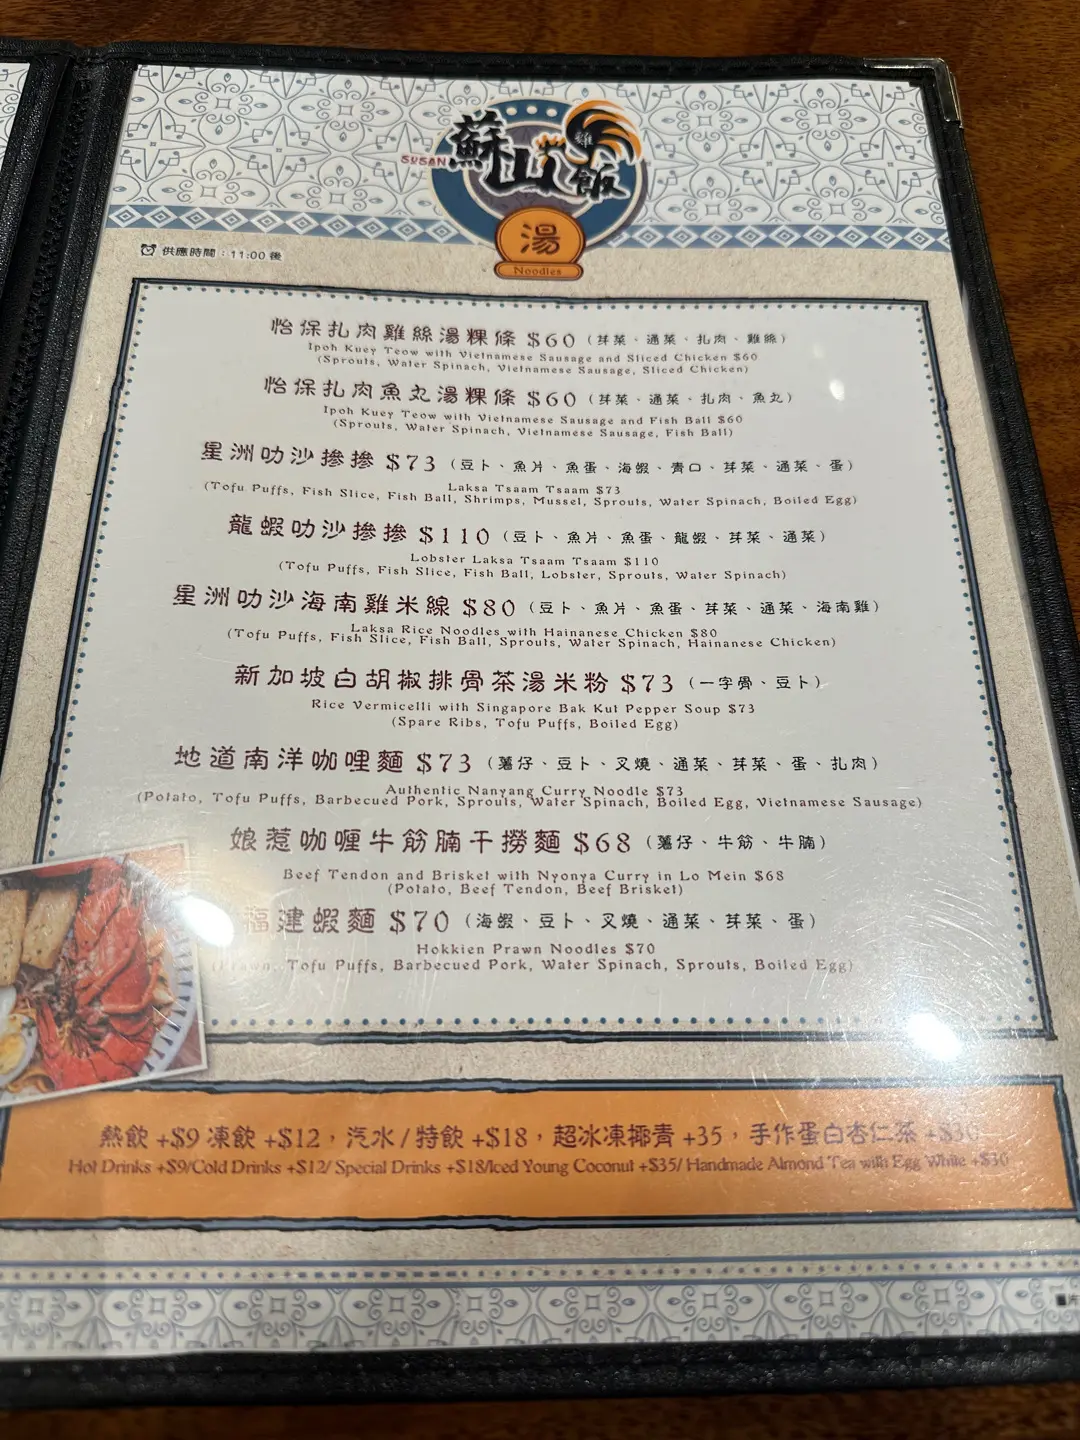 SUSAN 蘇山雞飯
湯
Noodles
供應時間：11:00 後
怡保扎肉雞絲湯粿條 $60（芽菜、通菜、扎肉、雞絲）
Ipoh Kuey Teow with Vietnamese Sausage and Sliced Chicken $60
(Sprouts, Water Spinach, Vietnamese Sausage, Sliced Chicken)
怡保扎肉魚丸湯粿條 $60（芽菜、通菜、扎肉、魚丸）
Ipoh Kuey Teow with Vietnamese Sausage and Fish Ball $60
(Sprouts, Water Spinach, Vietnamese Sausage, Fish Ball)
星洲叻沙摻摻 $73（豆卜、魚片、魚蛋、海蝦、青口、芽菜、通菜、蛋）
Laksa Tsaam Tsaam $73
(Tofu Puffs, Fish Slice, Fish Ball, Shrimps, Mussel, Sprouts, Water Spinach, Boiled Egg)
龍蝦叻沙摻摻 $110（豆卜、魚片、魚蛋、龍蝦、芽菜、通菜）
Lobster Laksa Tsaam Tsaam $110
(Tofu Puffs, Fish Slice, Fish Ball, Lobster, Sprouts, Water Spinach)
星洲叻沙海南雞米線 $80（豆卜、魚片、魚蛋、芽菜、通菜、海南雞）
Laksa Rice Noodles with Hainanese Chicken $80
(Tofu Puffs, Fish Slice, Fish Ball, Sprouts, Water Spinach, Hainanese Chicken)
新加坡白胡椒排骨茶湯米粉 $73（一字骨、豆卜）
Rice Vermicelli with Singapore Bak Kut Pepper Soup $73
(Spare Ribs, Tofu Puffs, Boiled Egg)
地道南洋咖哩麵 $73（薯仔、豆卜、叉燒、通菜、芽菜、蛋、扎肉）
Authentic Nanyang Curry Noodle $73
(Potato, Tofu Puffs, Barbecued Pork, Sprouts, Water Spinach, Boiled Egg, Vietnamese Sausage)
娘惹咖喱牛筋腩干撈麵 $68（薯仔、牛筋、牛腩）
Beef Tendon and Brisket with Nyonya Curry in Lo Mein $68
(Potato, Beef Tendon, Beef Brisket)
福建蝦麵 $70（海蝦、豆卜、叉燒、通菜、芽菜、蛋）
Hokkien Prawn Noodles $70
(Prawn, Tofu Puffs, Barbecued Pork, Water Spinach, Sprouts, Boiled Egg)
熱飲 +$9 凍飲 +$12，汽水 / 特飲 +$18，超冰凍椰青 +35，手作蛋白杏仁茶 +$30
Hot Drinks +$9/Cold Drinks +$12/ Special Drinks +$18/Iced Young Coconut +$35/ Handmade Almond Tea with Egg White +$30
圖片